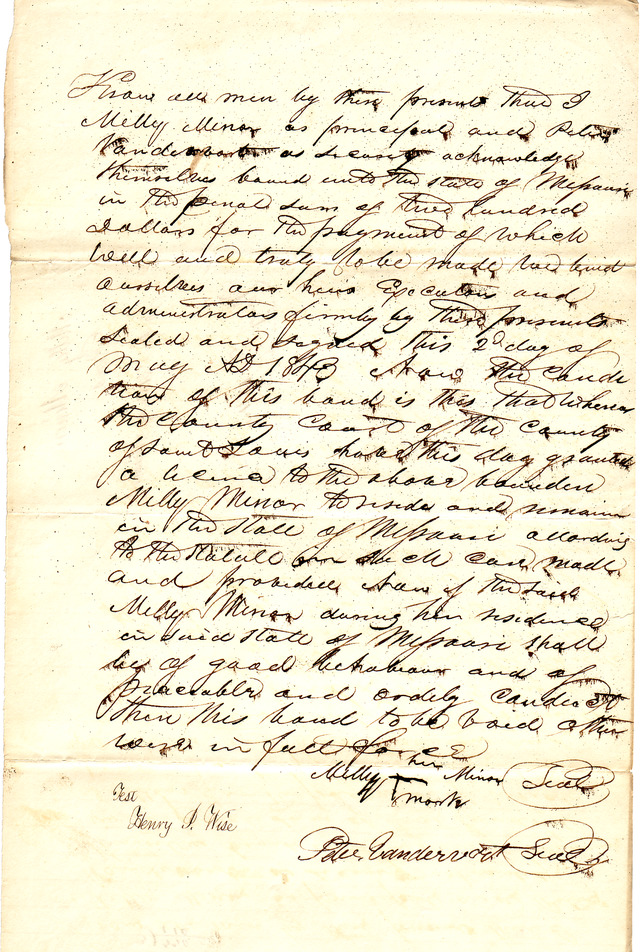 Know all men by these presents that I
Milly Minor as principal and Peter
Vandervoort as security acknowledge
themselves bound unto the State of Missouri
in the penal sum of two hundred
Dollars for the payment of which
well and truly to be made we bind
ourselves our heirs Executors and
administrators firmly by these presents
Sealed and signed this 2d day of
May AD 1843 Now the Condi
tion of this bond is this that whereas
the County Court of the County
of Saint Louis have this day granted
a licence to the above bounden
Milly Minor to reside and remain
in the State of Missouri according
to the Statute in such case made
and provided Now if the said
Milly Minor during her residence
in said State of Missouri shall
be of good behaviour and of
peaceable and orderly conduct
then this bond to be void other
wise in full force
Milly her Minor Seal
mark
Test
Henry P. Wise
Peter Vandervoort Seal